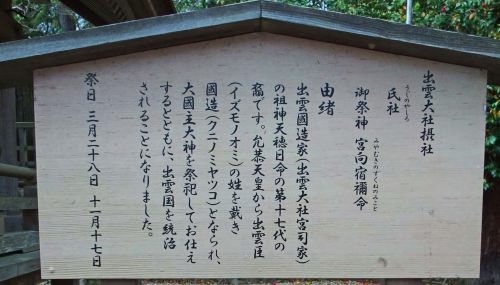 出雲大社摂社
氏社
うじのやしろ
御祭神 宮向宿禰命
みやむきのすくねのみこと
由緒
出雲國造家(出雲大社宮司家)
の祖神天穂日命の第十七代の
裔です。允恭天皇から出雲臣
(イズモノオミ)の姓を戴き
國造(クニノミヤツコ)となられ、
大國主大神を祭祀してお仕え
するとともに、出雲国を統治
されることになりました。
祭日 三月二十八日 十一月十七日